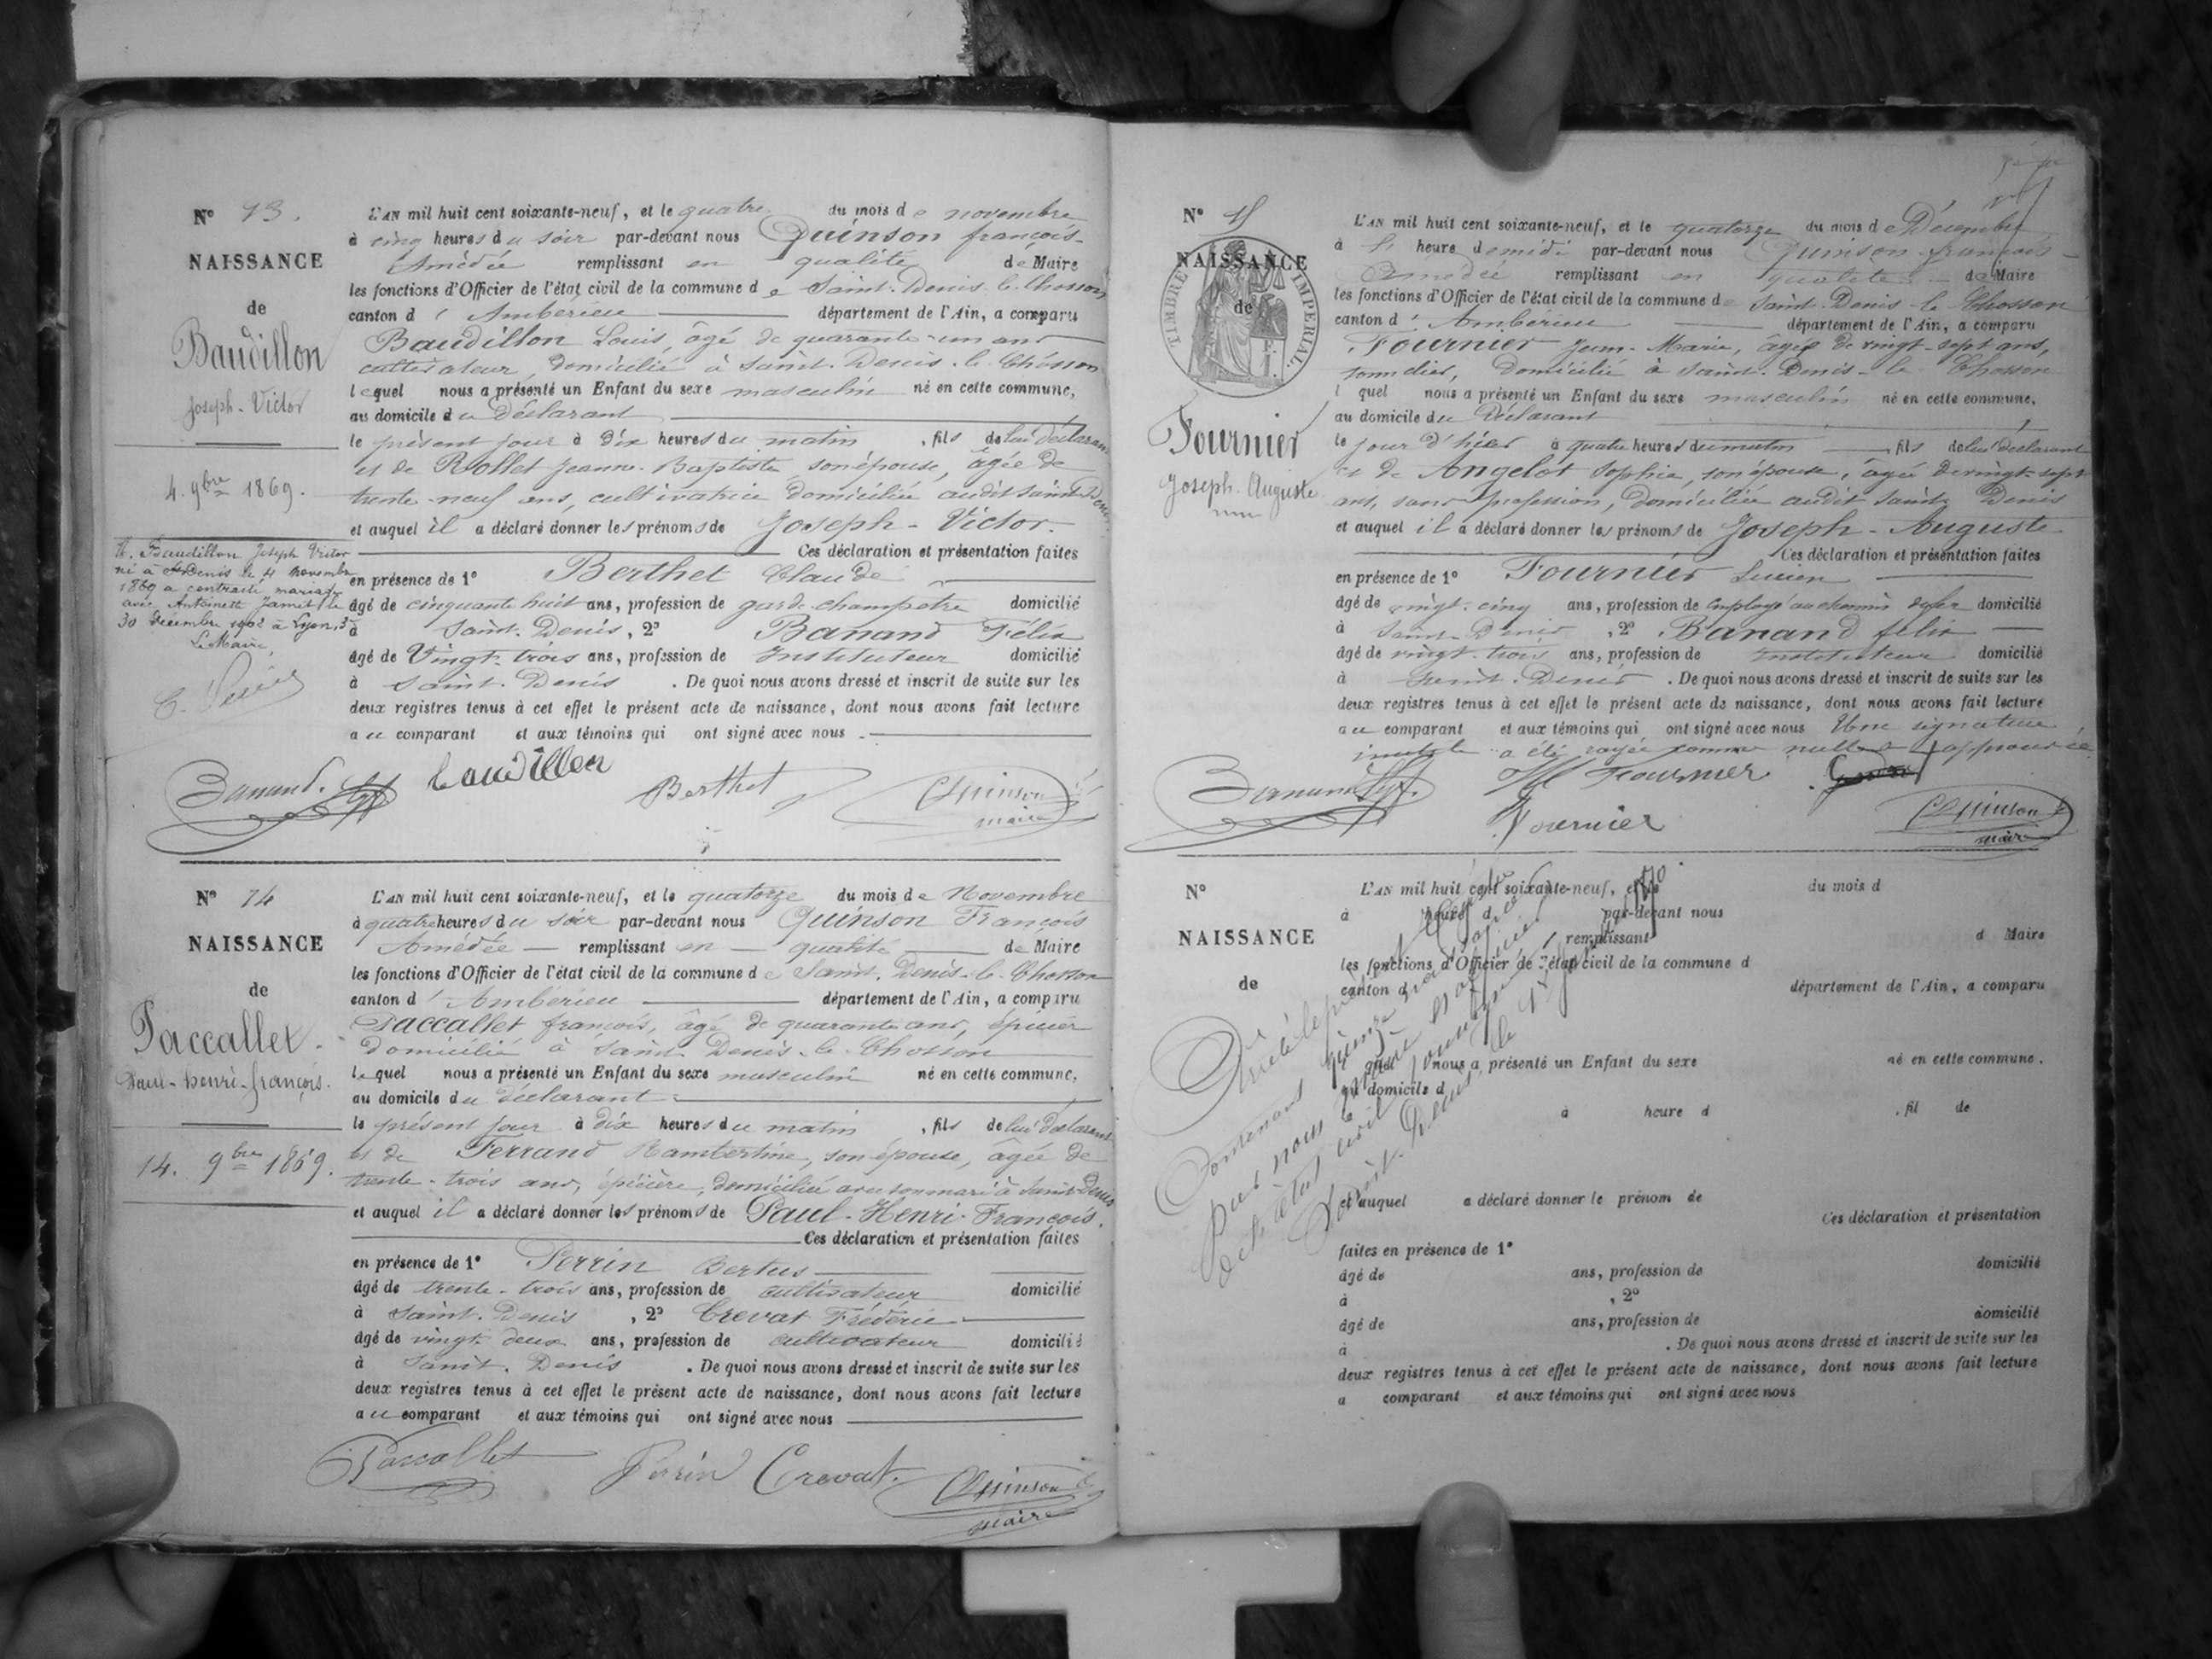 N° 13.
NAISSANCE
de
Baudillon
Joseph-Victor
4. 9bre 1869.
Baudillon Joseph Victor
né à St Denis le 4 novembre
1869 a contracté mariage
avec Antoinette Jamet le
30 décembre 1902 à Lyon, 3e
Le Maire,
L'AN mil huit cent soixante-neuf, et le quatre du mois de novembre
à cinq heures du soir par-devant nous Quinson françois-
Amédée remplissant en qualité de Maire
les fonctions d'Officier de l'état civil de la commune de Saint-Denis-le-Chosson
canton d'Ambérieu département de l'Ain, a comparu
Baudillon Louis, âgé de quarante-un ans
cultivateur, domicilié à Saint-Denis-le-Chosson
lequel nous a présenté un Enfant du sexe masculin né en cette commune,
au domicile du Déclarant
le présent jour à dix heures du matin, fils de lui déclarant
et de Rollet Jeanne-Baptiste, son épouse, âgée de
trente-neuf ans, cultivatrice domiciliée audit Saint-Denis
et auquel il a déclaré donner les prénoms de Joseph-Victor.
Ces déclaration et présentation faites
en présence de 1° Berthet Claude
âgé de cinquante huit ans, profession de garde-champêtre domicilié
à Saint-Denis, 2° Banand Félix
âgé de Vingt-trois ans, profession de Instituteur domicilié
à Saint-Denis. De quoi nous avons dressé et inscrit de suite sur les
deux registres tenus à cet effet le présent acte de naissance, dont nous avons fait lecture
au comparant et aux témoins qui ont signé avec nous.
Banand. Baudillon Berthet Quinson
maire
N° 14
NAISSANCE
de
Paccallet
Paul-henri-françois.
14. 9bre 1869.
L'AN mil huit cent soixante-neuf, et le quatorze du mois de Novembre
à quatre heures du soir par-devant nous Quinson François
Amédée remplissant en qualité de Maire
les fonctions d'Officier de l'état civil de la commune de Saint-Denis-le-Chosson
canton d'Ambérieu département de l'Ain, a comparu
Paccallet françois, âgé de quarante ans, épicier
domicilié à Saint-Denis-le-Chosson
lequel nous a présenté un Enfant du sexe masculin né en cette commune,
au domicile du déclarant
le présent jour à dix heures du matin, fils de lui déclarant
et de Ferrand Rambertine, son épouse, âgée de
trente-trois ans, épicière, domiciliée avec son mari à Saint-Denis
et auquel il a déclaré donner les prénoms de Paul-Henri-François.
Ces déclaration et présentation faites
en présence de 1° Perrin Bertus
âgé de trente-trois ans, profession de cultivateur domicilié
à Saint-Denis, 2° Crevat Frédéric
âgé de vingt-deux ans, profession de cultivateur domicilié
à Saint-Denis. De quoi nous avons dressé et inscrit de suite sur les
deux registres tenus à cet effet le présent acte de naissance, dont nous avons fait lecture
au comparant et aux témoins qui ont signé avec nous
Paccallet Perrin Crevat. Quinson
maire
N° 15
NAISSANCE
de
TIMBRE IMPERIAL
Fournier
Joseph-Auguste
L'AN mil huit cent soixante-neuf, et le quatorze du mois de Décembre
à heure de midi par-devant nous Quinson françois-
Amédée remplissant en qualité de Maire
les fonctions d'Officier de l'état civil de la commune de Saint-Denis-le-Chosson
canton d'Ambérieu département de l'Ain, a comparu
Fournier Jean-Marie, âgé de vingt-sept ans,
domicilié à Saint-Denis-le-Chosson
lquel nous a présenté un Enfant du sexe masculin né en cette commune,
au domicile du Déclarant
le jour d'hier à quatre heures du matin fils de lui déclarant
et de Angelot Sophie, son épouse, âgée de vingt-sept
ans, sans profession, domiciliée audit Saint-Denis
et auquel il a déclaré donner les prénoms de Joseph-Auguste
Ces déclaration et présentation faites
en présence de 1° Fournier Lucien
âgé de vingt-cinq ans, profession de employé au chemin de fer domicilié
à Saint-Denis, 2° Banand félix
âgé de vingt-trois ans, profession de Instituteur domicilié
à Saint-Denis. De quoi nous avons dressé et inscrit de suite sur les
deux registres tenus à cet effet le présent acte de naissance, dont nous avons fait lecture
au comparant et aux témoins qui ont signé avec nous Une signature
inutile a été rayée comme nulle approuvée
Banand Fournier
Fournier Quinson
maire
N°
NAISSANCE
de
L'AN mil huit cent soixante-neuf, et le du mois d
à heure d par-devant nous
remplissant d Maire
les fonctions d'Officier de l'état civil de la commune d
canton d département de l'Ain, a comparu
l quel nous a présenté un Enfant du sexe né en cette commune.
au domicile d
le à heure d , fil de
et auquel a déclaré donner le prénom de
Ces déclaration et présentation
faites en présence de 1°
âgé de ans, profession de domicilié
à , 2°
âgé de ans, profession de domicilié
à . De quoi nous avons dressé et inscrit de suite sur les
deux registres tenus à cet effet le présent acte de naissance, dont nous avons fait lecture
a comparant et aux témoins qui ont signé avec nous
Contenant quinze
par nous maire
de l'état civil
Saint-Denis, le